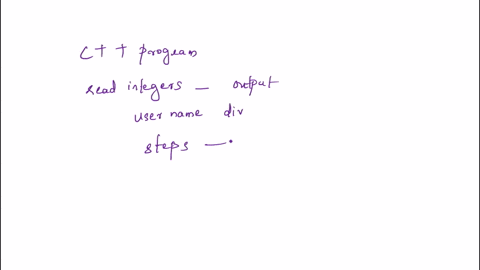 C++ program
read integers — output
user name div
steps —